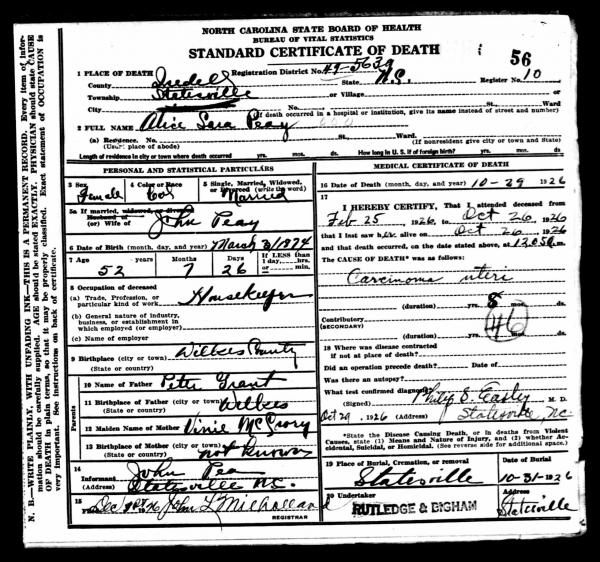 NORTH CAROLINA STATE BOARD OF HEALTH
BUREAU OF VITAL STATISTICS
STANDARD CERTIFICATE OF DEATH
56
1 PLACE OF DEATH Registration District No. 49-5639 Register No. 10
County Iredell State N.C.
Township Statesville or Village or
City No. St., Ward
(If death occurred in a hospital or institution, give its name instead of street and number)
2 FULL NAME Alice Peay
(a) Residence. No. St., Ward
(Usual place of abode) (If nonresident give city or town and State)
Length of residence in city or town where death occurred yrs. mos. ds. How long in U. S. if of foreign birth? yrs. mos. ds.
PERSONAL AND STATISTICAL PARTICULARS
3 Sex 4 Color or Race 5 Single, Married, Widowed, or Divorced (write the word)
Female Col Married
5a If married, widowed, or divorced
Husband of
(or) Wife of John Peay
6 Date of Birth (month, day, and year) March 3/1874
7 Age years Months Days If LESS than 1 day, hrs. or min.
52 7 26
8 Occupation of deceased
(a) Trade, Profession, or particular kind of work Housekeeper
(b) General nature of industry, business, or establishment in which employed (or employer)
(c) Name of employer
9 Birthplace (city or town) Wilkes County
(State or country)
Parents
10 Name of Father Peter Grant
11 Birthplace of Father (city or town) Wilkes
(State or country)
12 Maiden Name of Mother Vinie McCrory
13 Birthplace of Mother (city or town) not known
(State or country)
14 Informant John Pea
(Address) Statesville N.C.
15 Filed Dec 1926 John L Milholland
REGISTRAR
MEDICAL CERTIFICATE OF DEATH
16 Date of Death (month, day, and year) 10-29 1926
17 I HEREBY CERTIFY, That I attended deceased from
Feb 25, 1926, to Oct 26, 1926
that I last saw her alive on Oct 26, 1926
and that death occurred, on the date stated above, at m.
The CAUSE OF DEATH* was as follows:
Carcinoma uteri
(duration) yrs. 8 mos. ds.
Contributory
(SECONDARY)
46
(duration) yrs. mos. ds.
18 Where was disease contracted
if not at place of death?
Did an operation precede death? Date of
Was there an autopsy?
What test confirmed diagnosis?
(Signed) Philip S. Easley M. D.
Oct 29, 1926 (Address) Statesville, NC
*State the Disease Causing Death, or in deaths from Violent Causes, state (1) Means and Nature of Injury, and (2) whether Accidental, Suicidal, or Homicidal. (See reverse side for additional space.)
19 Place of Burial, Cremation, or removal Date of Burial
Statesville 10-31-1926
20 Undertaker Address
RUTLEDGE & BIGHAM Statesville
N. B.—WRITE PLAINLY, WITH UNFADING INK—THIS IS A PERMANENT RECORD. Every item of information should be carefully supplied. AGE should be stated EXACTLY. PHYSICIAN should state CAUSE OF DEATH in plain terms, so that it may be properly classified. Exact statement of OCCUPATION is very important. See instructions on back of certificate.